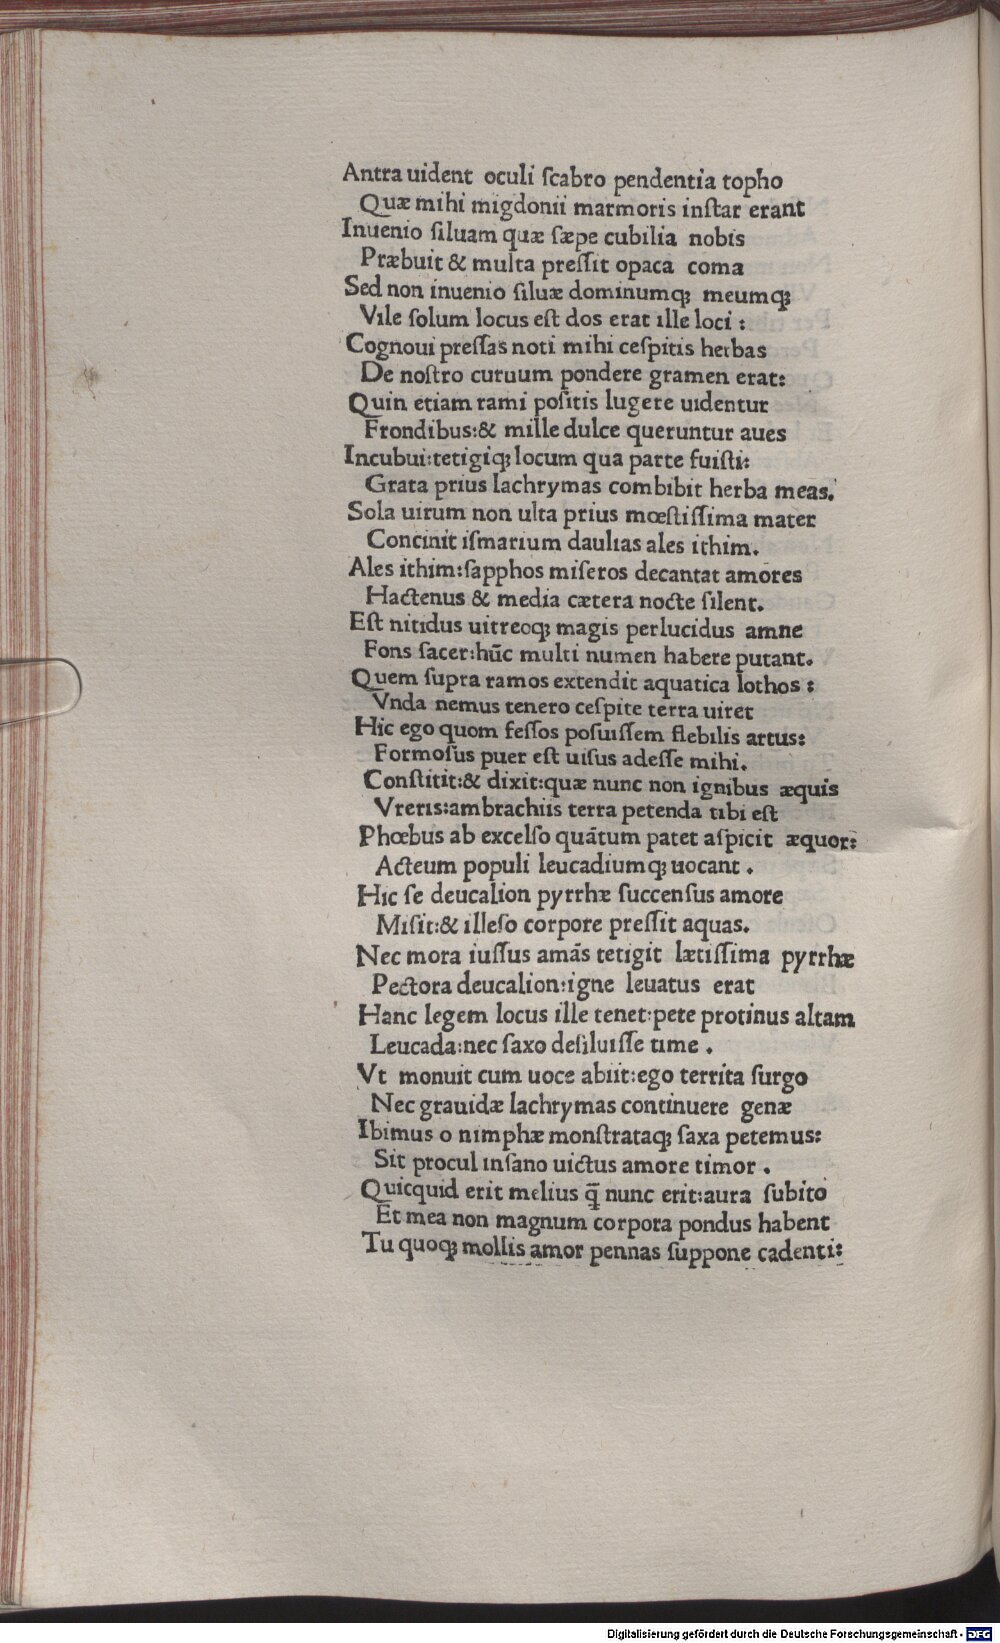 Antra uident oculi ſcabro pendentia topho
Quæ mihi migdonii marmoris inſtar erant
Inuenio ſiluam quæ ſæpe cubilia nobis
Præbuit & multa preſſit opaca coma
Sed non inuenio ſiluæ dominumqꝫ meumqꝫ
Vile ſolum locus eſt dos erat ille loci :
Cognoui preſſas noti mihi ceſpitis herbas
De noſtro curuum pondere gramen erat:
Quin etiam rami poſitis lugere uidentur
Frondibus:& mille dulce queruntur aues
Incubui:tetigiqꝫ locum qua parte fuiſti:
Grata prius lachrymas combibit herba meas.
Sola uirum non ulta prius mœſtiſſima mater
Concinit iſmarium daulias ales ithim.
Ales ithim:ſapphos miſeros decantat amores
Hactenus & media cætera nocte ſilent.
Eſt nitidus uitreoqꝫ magis perlucidus amne
Fons ſacer:hūc multi numen habere putant.
Quem ſupra ramos extendit aquatica lothos :
Vnda nemus tenero ceſpite terra uiret
Hic ego quom feſſos poſuiſſem flebilis artus:
Formoſus puer eſt uiſus adeſſe mihi.
Conſtitit:& dixit:quæ nunc non ignibus æquis
Vreris:ambrachiis terra petenda tibi eſt
Phœbus ab excelſo quātum patet aſpicit æquor:
Acteum populi leucadiumqꝫ uocant .
Hic ſe deucalion pyrrhæ ſuccenſus amore
Miſit:& illeſo corpore preſſit aquas.
Nec mora iuſſus amās tetigit lætiſſima pyrrhæ
Pectora deucalion:igne leuatus erat
Hanc legem locus ille tenet:pete protinus altam
Leucada:nec ſaxo deſiluiſſe time .
Vt monuit cum uoce abiit:ego territa ſurgo
Nec grauidæ lachrymas continuere genæ
Ibimus o nimphæ monſtrataqꝫ ſaxa petemus:
Sit procul inſano uictus amore timor .
Quicquid erit melius q̄ nunc erit:aura ſubito
Et mea non magnum corpora pondus habent
Tu quoqꝫ mollis amor pennas ſuppone cadenti:
Digitalisierung gefördert durch die Deutsche Forschungsgemeinschaft - DFG